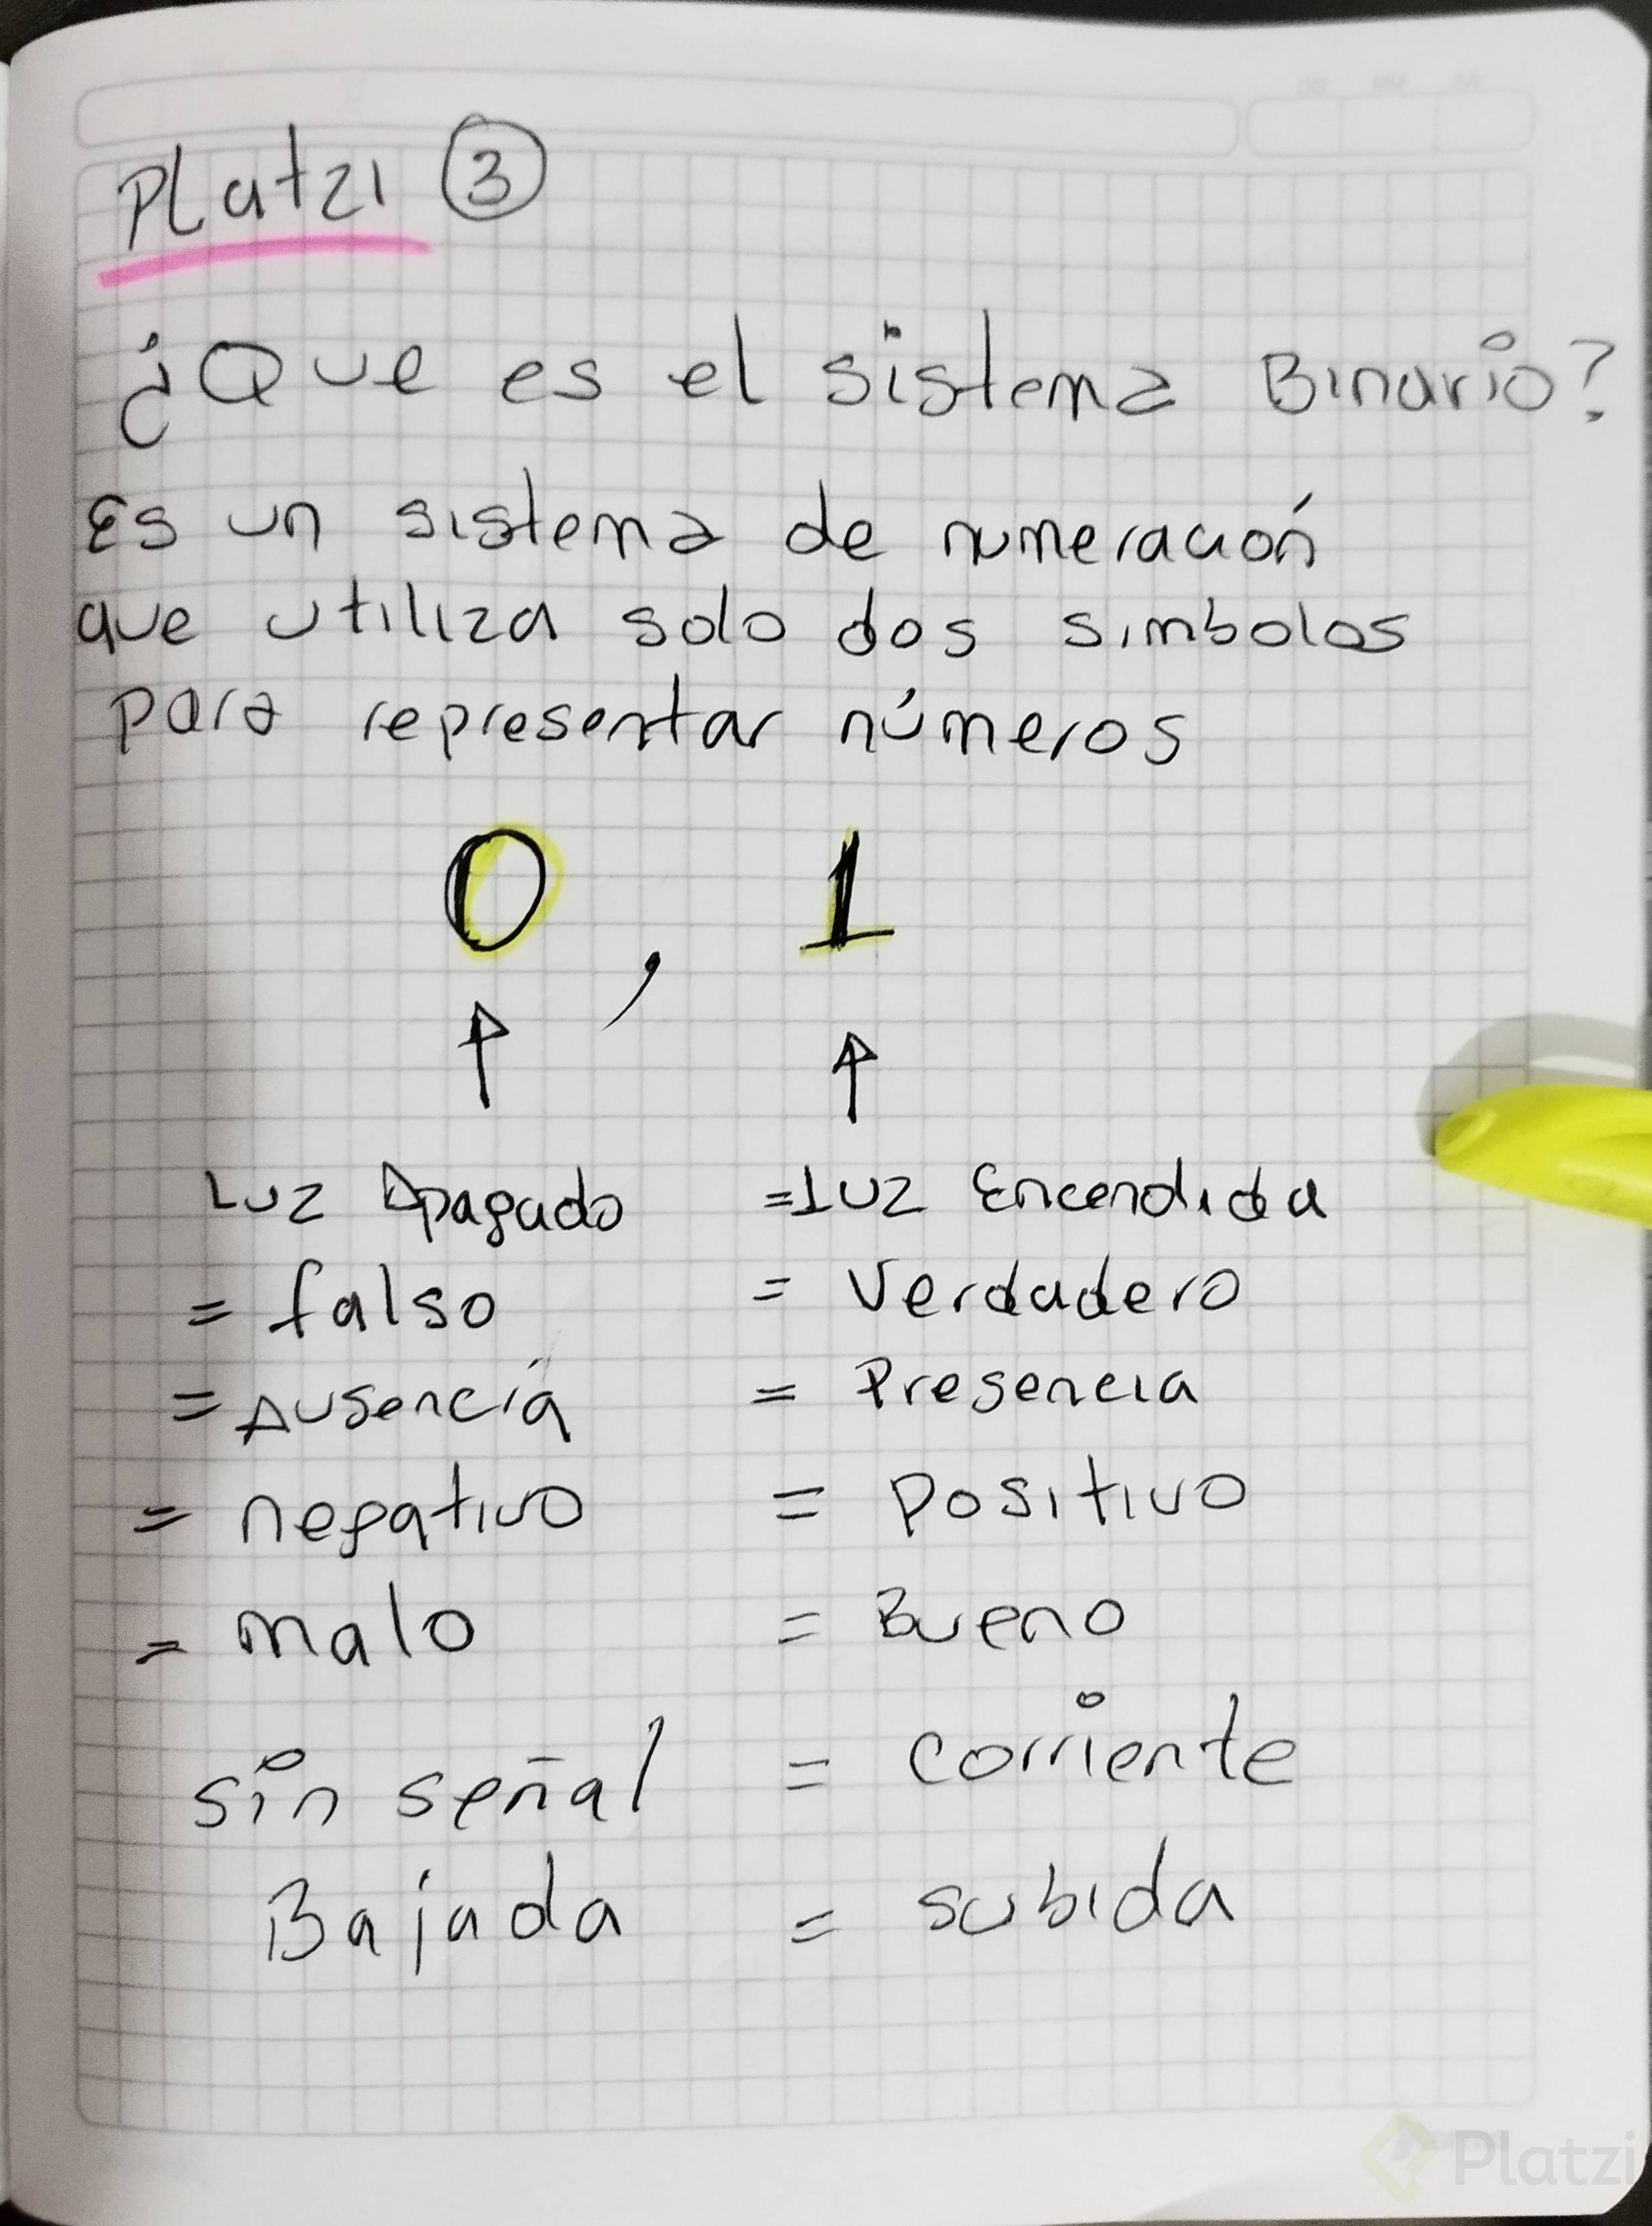 Platzi ③
¿Que es el sistema Binario?
Es un sistema de numeración
que utiliza solo dos simbolos
para representar números
0 , 1
Luz Apagado =Luz Encendida
= falso = Verdadero
= Ausencia = Presencia
= negativo = Positivo
= malo = Bueno
sin señal = corriente
Bajada = subida
Platzi